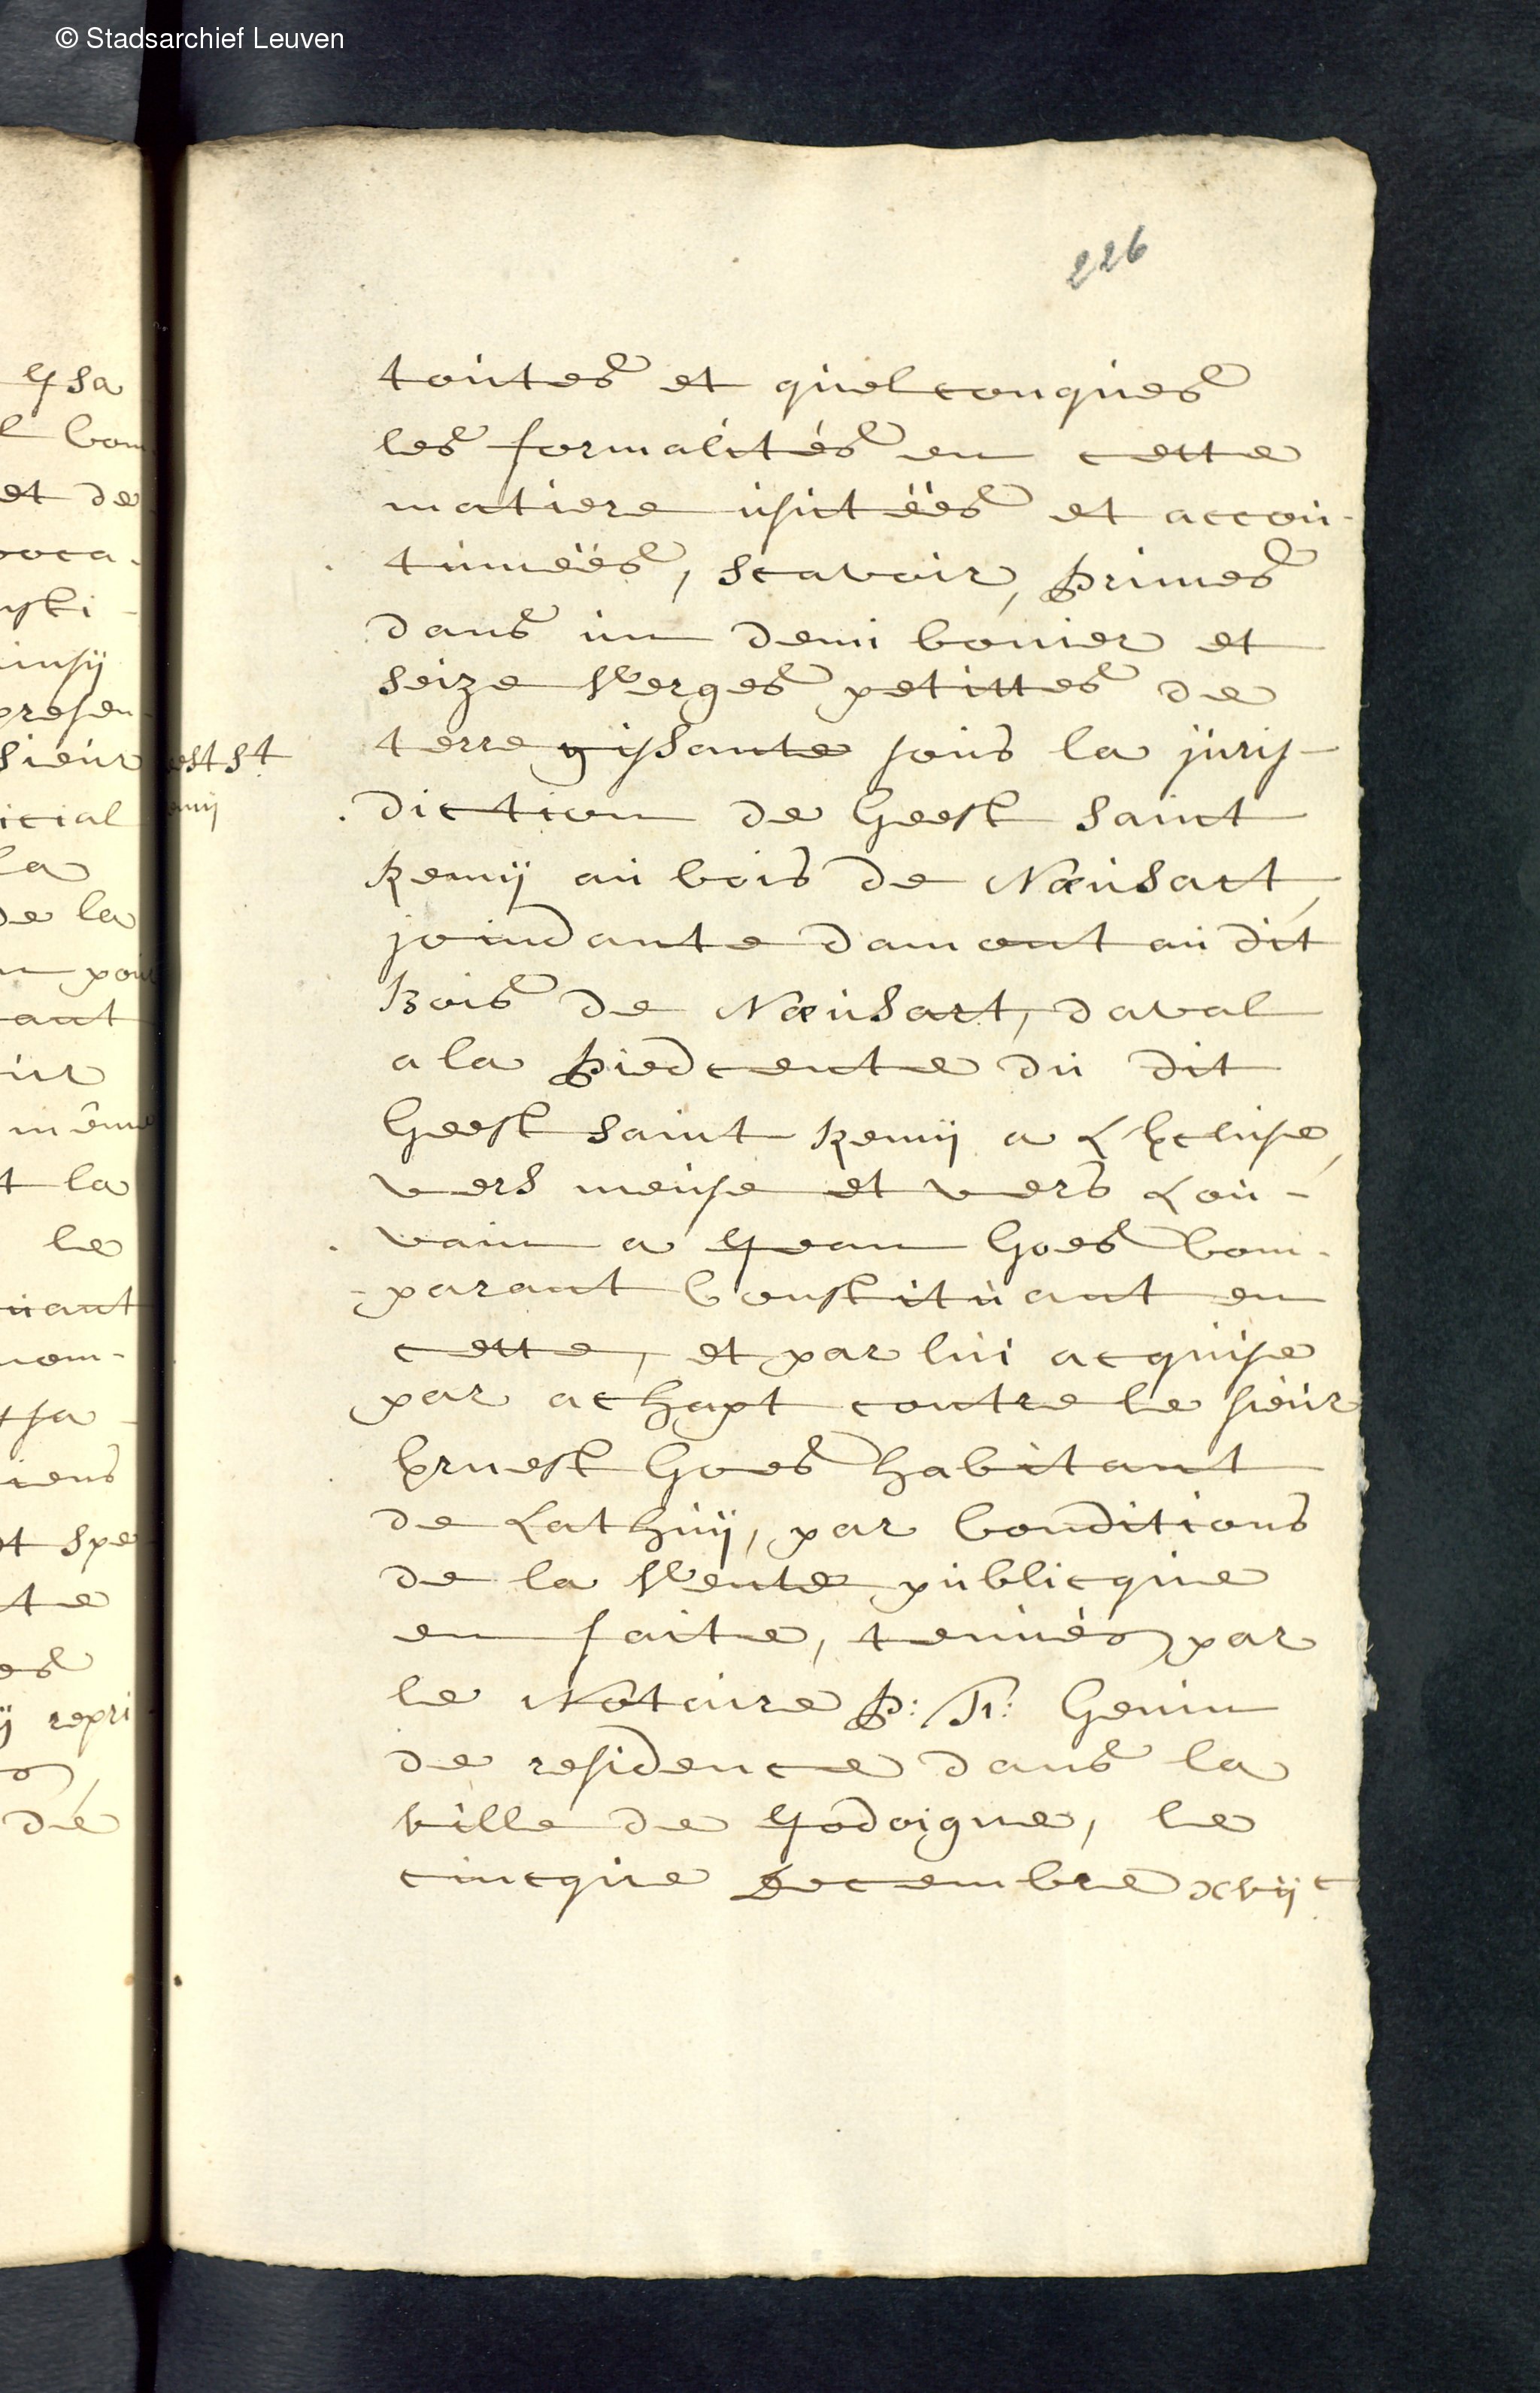 © Stadsarchief Leuven
226
toutes et quelconques
les formalités en cette
matiere usitéés et accou-
tuméés, scavoir, primes
dans un demi bonier et
seize verges petittes de
terre gissante sous la juris-
diction de Geest Saint
Remij au bois de Noeusart,
joindante damont au dit
Bois de Noeusart, daval
a la piedcente du dit
Geest Saint Remij a L'Ecluse,
vers meuse et vers Lou-
vain a Jean Goes Com-
parant Constituant en
cette, et par lui acquise
par achapt contre le sieur
Ernest Goes habitant
de Lathuij, par Conditions
de la Vente publicque
en faite, tenués par
le Notaire P: Genin
de residence dans la
ville de Jodoigne, le
cincque Decembre xvijc
Jsa
l Com
et de
voca-
presen
sieur
icial
la
de la
pour
ant
même
t la
le
uant
nom-
iens
t spe
te
ij repri
dé
est St